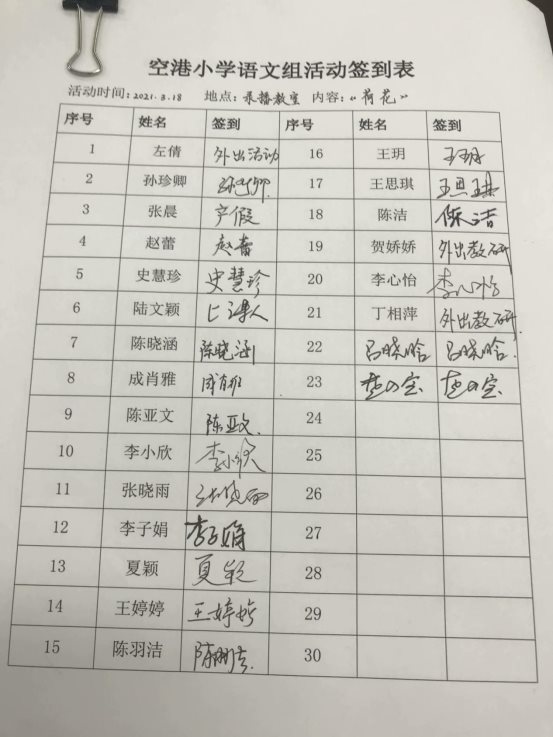 空港小学语文组活动签到表
活动时间:2021.3.18 地点:录播教室 内容:"荷花"
序号 姓名 签到 序号 姓名 签到
1 左倩 外出活动 16 王玥 王玥
2 孙珍卿 孙珍卿 17 王思琪 王思琪
3 张晨 产假 18 陈洁 陈洁
4 赵蕾 赵蕾 19 贺娇娇 外出教研
5 史慧珍 史慧珍 20 李心怡 李心怡
6 陆文颖 21 丁相萍 外出教研
7 陈晓涵 陈晓涵 22 吕晓晗 吕晓晗
8 成肖雅 成肖雅 23
9 陈亚文 陈亚文 24
10 李小欣 李小欣 25
11 张晓雨 张晓雨 26
12 李子娟 李子娟 27
13 夏颖 夏颖 28
14 王婷婷 王婷婷 29
15 陈羽洁 陈羽洁 30